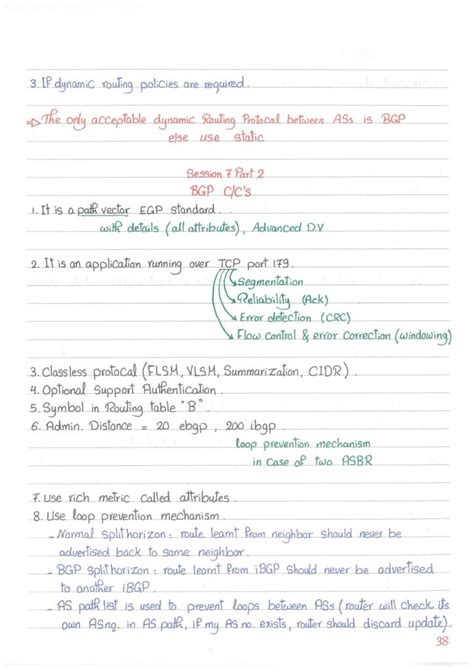 3. If dynamic routing policies are required.
⇨ The only acceptable dynamic Routing Protocal between ASs is BGP
else use static
Session 7 Part 2
BGP C/C's
1. It is a path vector EGP standard.
with details (all attributes), Advanced D.V
2. It is an application running over TCP port 179.
Segmentation
Reliability (Ack)
Error detection (CRC)
Flow control & error Correction (windowing)
3. Classless protocal (FLSM, VLSM, Summarization, CIDR).
4. Optional Support Authentication.
5. Symbol in Routing table "B".
6. Admin. Distance = 20 ebgp, 200 ibgp.
loop prevention mechanism
in case of two ASBR
7. Use rich metric called attributes.
8. Use loop prevention mechanism.
- Normal split horizon: route learnt from neighbor should never be
advertised back to same neighbor.
- BGP split horizon: route learnt from iBGP should never be advertised
to another iBGP.
- AS path list is used to prevent loops between ASs (router will check its
own AS no. in AS path, if my AS no. exists, router should discard update).
38